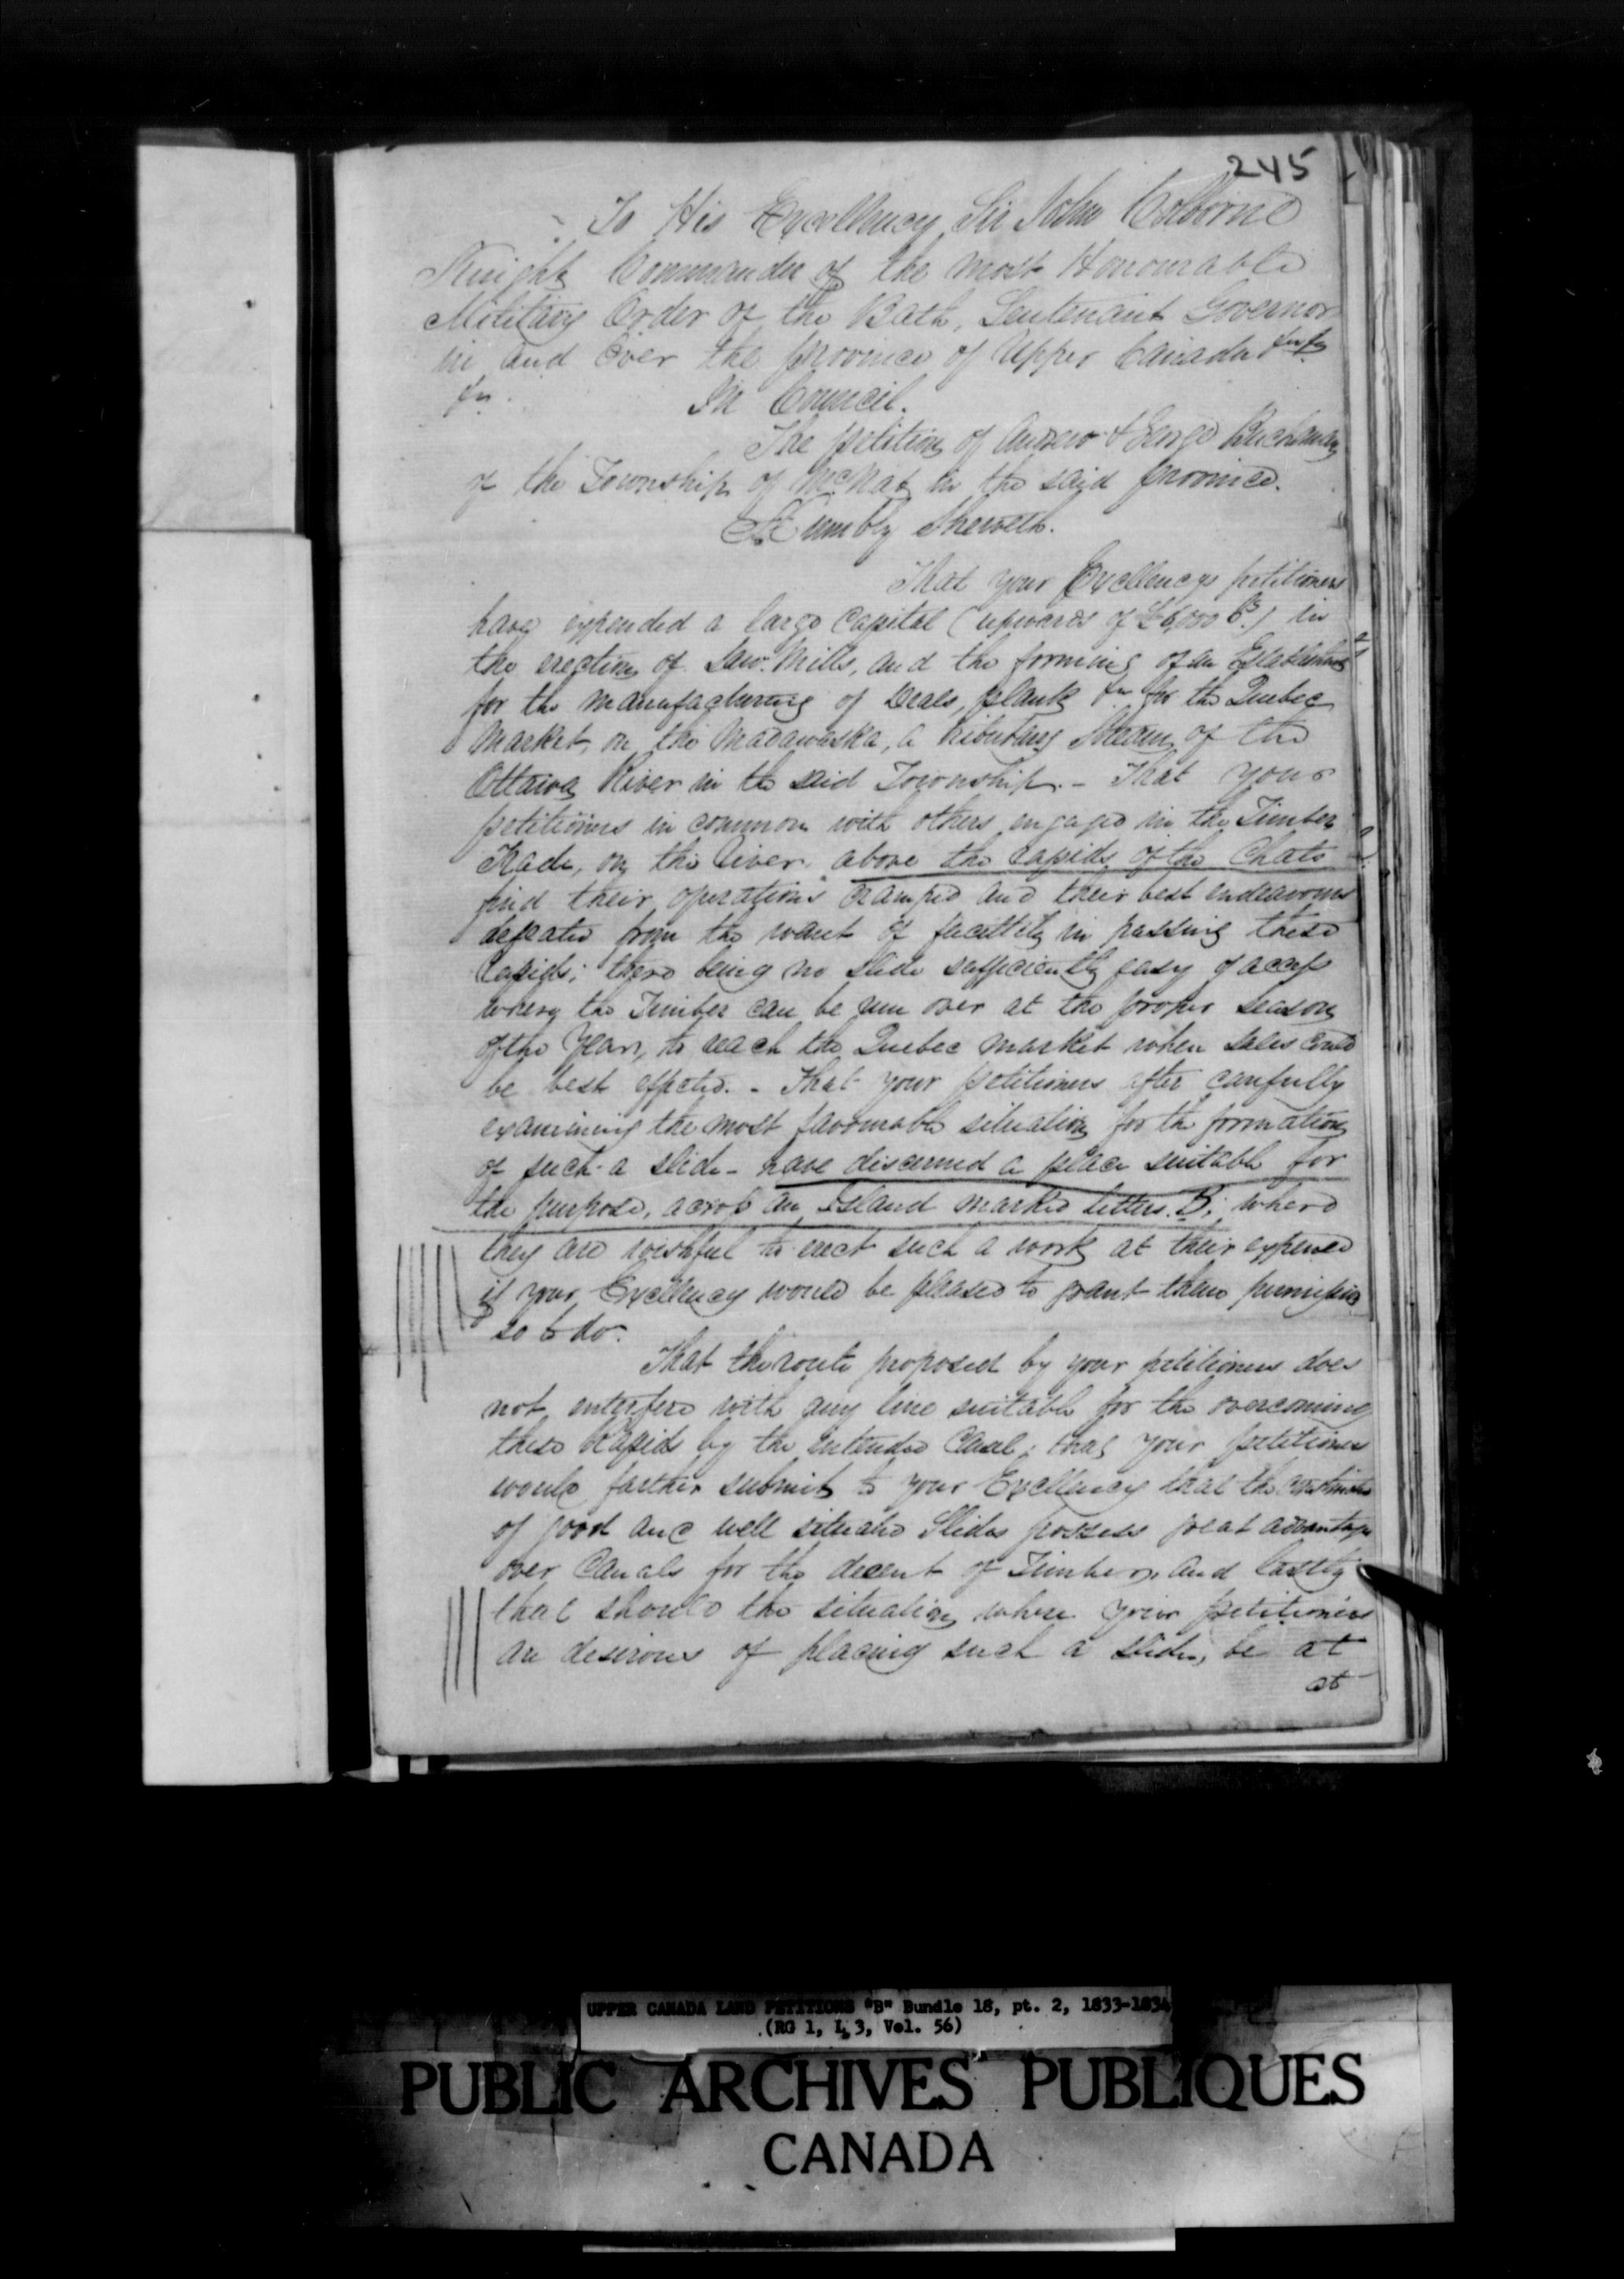 245
To His Excellency Sir John Colborne
Knight Commander of the most Honourable
Military Order of the Bath, Leutenant Governor
in and Over the province of Upper Canada &c &c
&c. In Council.
The petition of Andrew & George Buchanan
of the Township of McNab in the said province.
Humbly Sheweth.
That your Excellencys petitioners
have expended a large Capital (upwards of £6,000 Cy.) in
the erection of Saw Mills, and the forming of an Establishment
for the manufacturing of Deals, plank &c for the Quebec
Market, on the Madawaska, a tributary Stream of the
Ottawa River in the said Township. - That your
petitioners in common with others engaged in the Timber
Trade, on the River, above the rapids of the Chats
find their operations cramped and their best endeavours
defeated from the want of facillity in passing these
Rapids; there being no slide sufficiently easy of access
where the Timber can be run over at the proper season
of the Year, to reach the Quebec market when sales could
be best effected. - That your petitioners after carefully
examining the most favourable situation for the formation
of such a slide - have discerned a place suitable for
the purpose, across an Island marked letter B; where
they are wishful to erect such a work at their expence
if your Excellency would be pleased to grant them permission
so to do.
That the route proposed by your petitioners does
not interfere with any line suitable for the overcoming
these Rapids by the intended Canal; that your petitioners
would farther submit to your Excellency that the construction
of good and well situated Slides possess great advantage
over Canals for the decent of Timber, and lastly
that should the situation where your petitioners
are desirous of placing such a slide, be at
at
UPPER CANADA LAND PETITIONS "B" Bundle 18, pt. 2, 1833-1834
(RG 1, L 3, Vol. 56)
PUBLIC ARCHIVES PUBLIQUES
CANADA